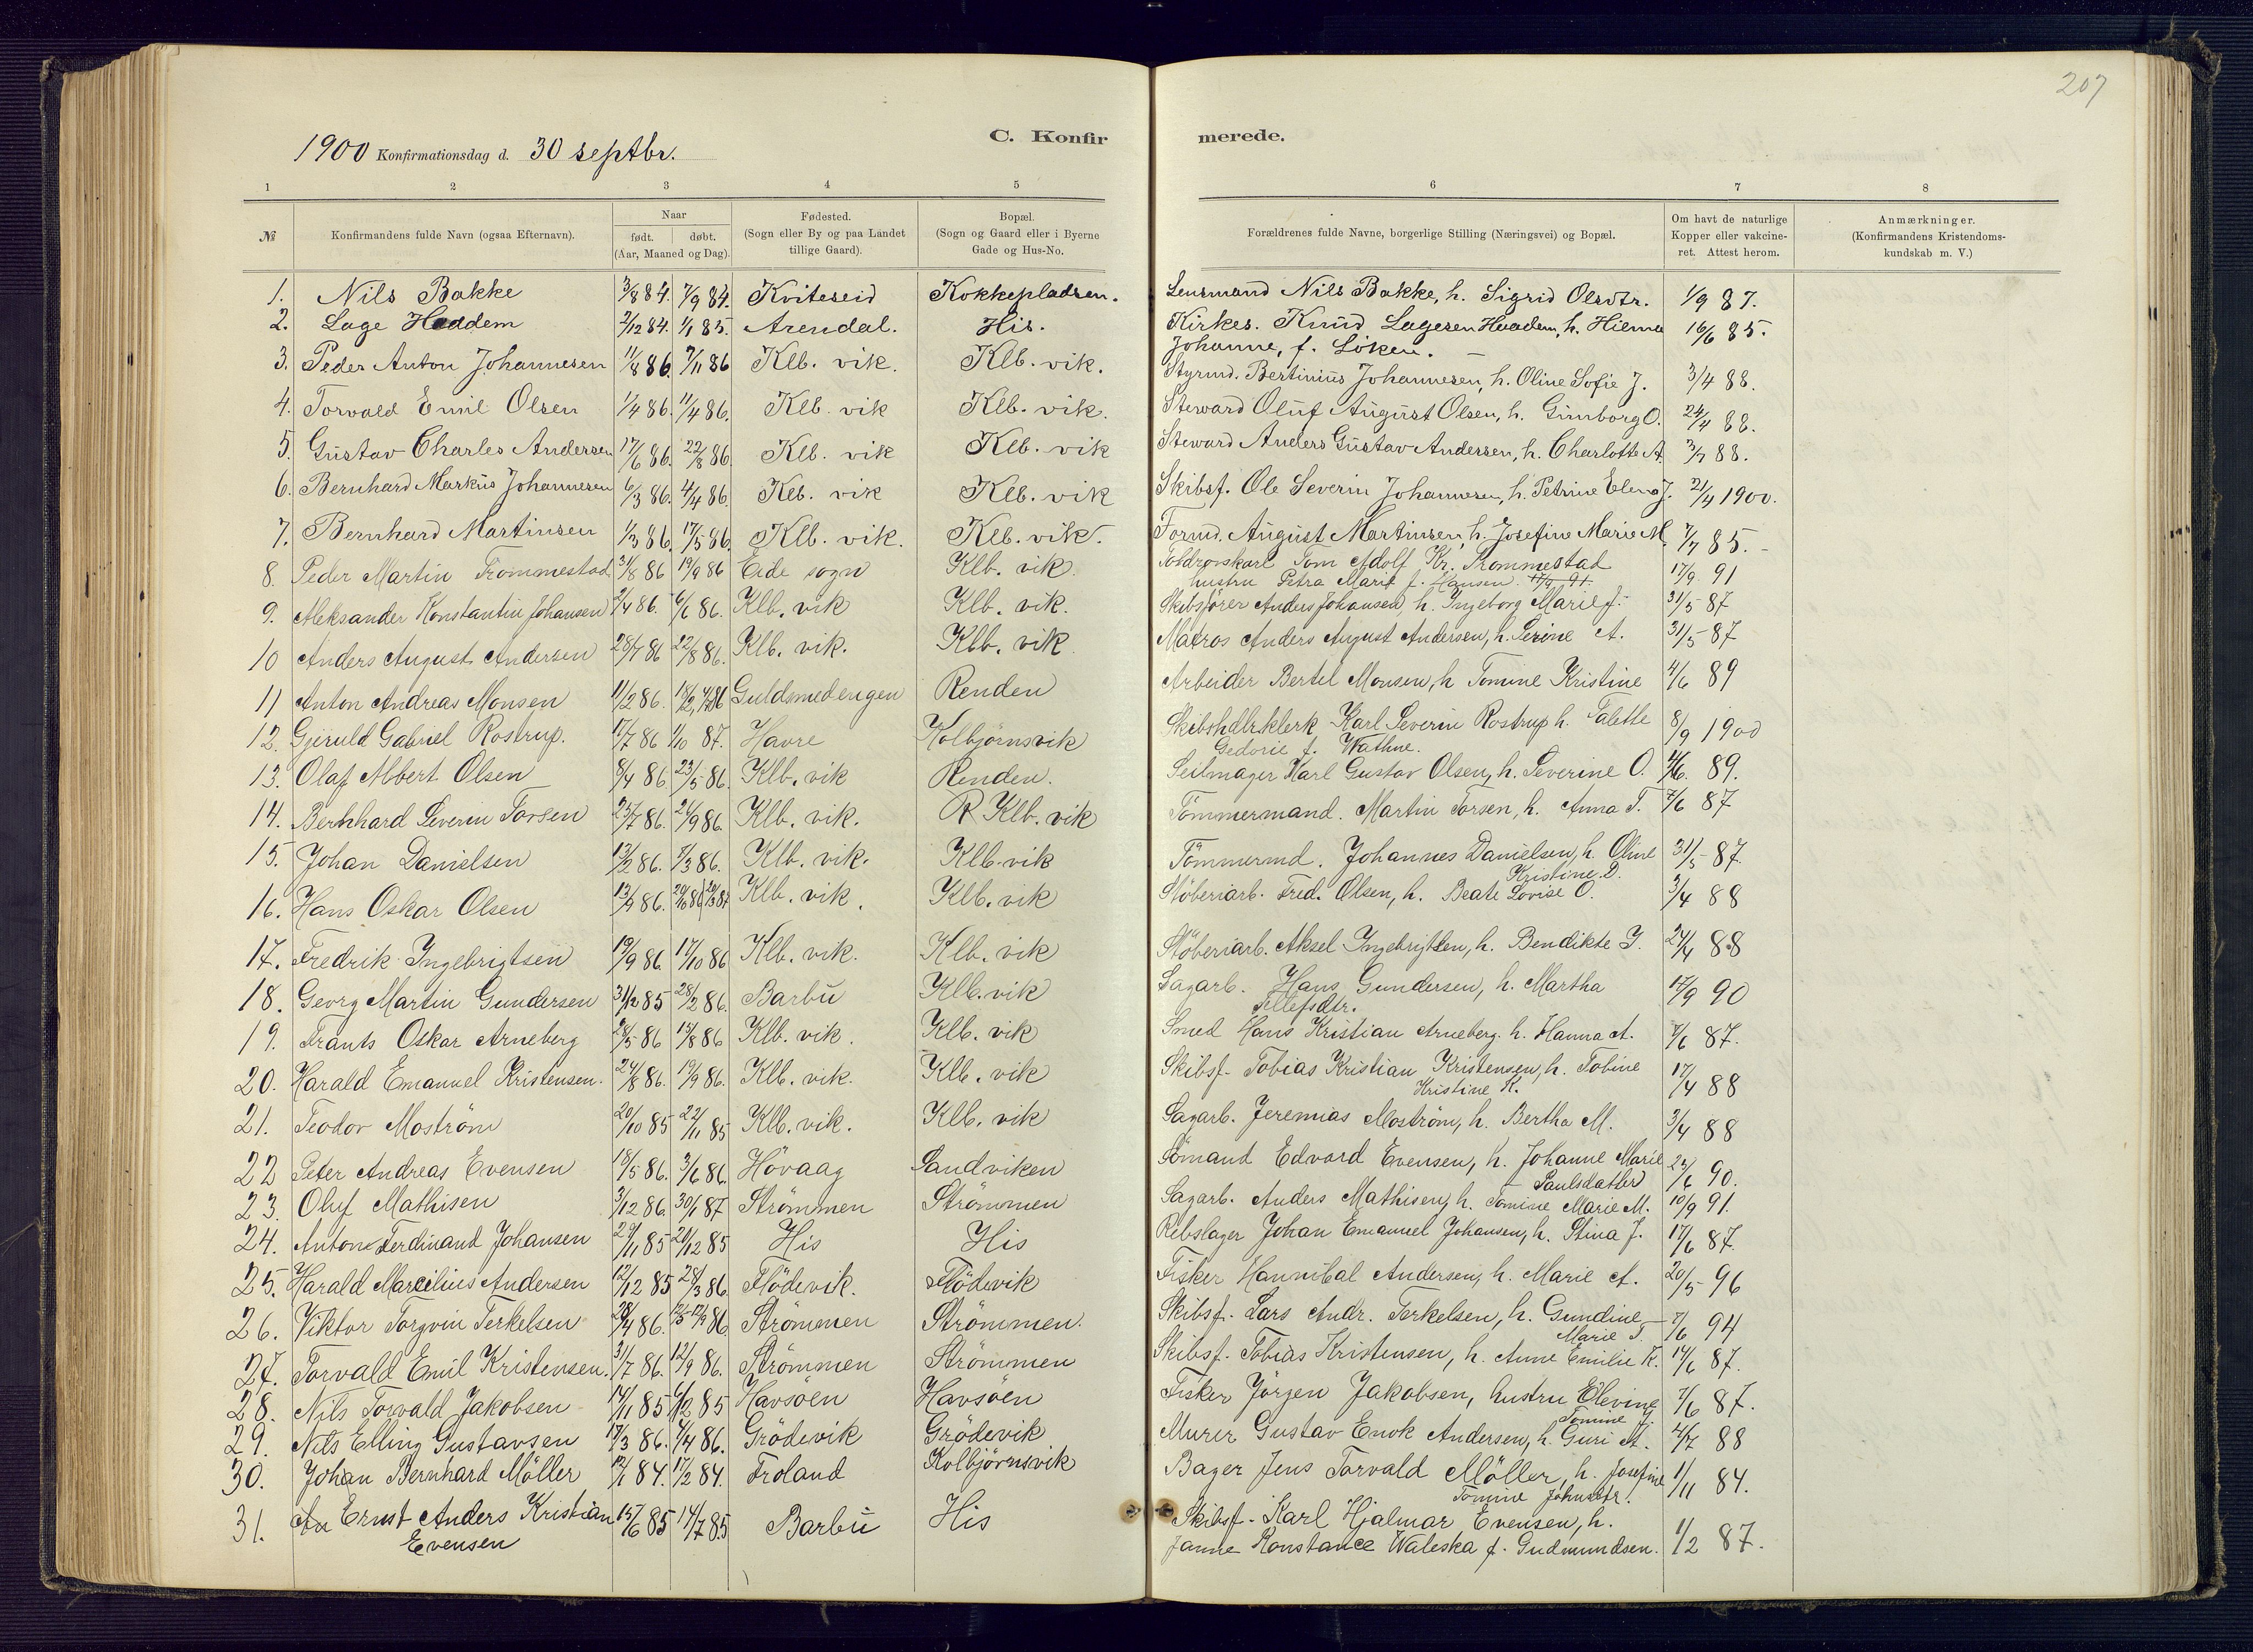 207
C. Konfirmerede.
1900 Konfirmationsdag d. 30 septbr.
1 2 3 4 5 6 7 8
№ Konfirmandens fulde Navn (ogsaa Efternavn). Naar født. døbt. (Aar, Maaned og Dag). Fødested. (Sogn eller By og paa Landet tillige Gaard). Bopæl. (Sogn og Gaard eller i Byerne Gade og Hus-No. Forældrenes fulde Navne, borgerlige Stilling (Næringsvei) og Bopæl. Om havt de naturlige Kopper eller vakcineret. Attest herom. Anmærkninger. (Konfirmandens Kristendomskundskab m. V.)
1. Nils Bakke 3/8 84. 7/9 84. Kviteseid Kokkepladsen. Lensmand Nils Bakke, h. Sigrid Olsdtr. 1/9 87.
2. Lage Haddem 2/12 84. 1/1 85. Arendal. His. Kirkes. Knud Lagesen Haadem, h. Hilma 16/6 85.
Johanne, f. Löken.
3. Peder Anton Johannesen 11/8 86. 7/11 86 Klb. vik. Klb. vik. Styrmd. Bertinius Johannesen, h. Oline Sofie J. 3/4 88.
4. Torvald Emil Olsen 1/4 86. 11/4 86. Klb. vik Klb. vik. Steward Oluf August Olsen, h. Gunborg O. 24/4 88.
5. Gustav Charles Andersen 17/6 86. 22/8 86. Klb. vik Klb. vik Steward Anders Gustav Andersen, h. Charlotte A. 3/7 88.
6. Bernhard Markus Johannesen 6/3 86. 4/4 86. Klb. vik Klb. vik Skibsf. Ole Severin Johannesen, h. Petrine Elena J. 21/4 1900.
7. Bernhard Martinsen 1/3 86. 17/5 86. Klb. vik. Klb. vik. Formd. August Martinsen, h. Josefine Marie M. 7/7 85.
8. Peder Martin Trommestad 31/8 86 19/9 86 Eide sogn Klb. vik. Toldropskarl Tom Adolf Kr. Trommestad 17/9 91
hustru Petra Marie f. Hansen. 17/9 91.
9. Aleksander Konstantin Johansen 2/4 86. 6/6 86. Klb. vik Klb. vik. Skibsförer Anders Johansen, h. Ingeborg Marie J. 31/5 87
10 Anders August Andersen 28/7 86 22/8 86. Klb. vik. Klb. vik. Matros Anders August Andersen, h. Serine A. 31/5 87
11 Anton Andreas Monsen 11/2 86. Guldsmedengen Renden Arbeider Bertel Monsen, h Tomine Kristine 4/6 89
12. Gjeruld Gabriel Rostrup. 17/7 86 1/10 87. Havre Kolbjörnsvik Skibshdlrklerk Karl Severin Rostrup h. Talette 8/9 1900
Gedorie f. Wathne.
13. Olaf Albert Olsen 8/4 86 23/5 86. Klb. vik Renden. Seilmager Karl Gustav Olsen, h. Severine O. 4/6. 89.
14. Bernhard Severin Torsen 25/7 86. 26/9 86. Klb. vik. R Klb. vik Tömmermand. Martin Torsen, h. Anna T. 7/6 87
15. Johan Danielsen 13/2 86. 7/3 86. Klb. vik. Klb. vik Tömmermd. Johannes Danielsen, h. Oline 31/5 87.
Kristine D.
16. Hans Oskar Olsen Klb. vik. Klb. vik Stöberiarb. Fred. Olsen, h. Beate Lovise O. 3/4 88
17. Fredrik Ingebrigtsen 19/9 86. 17/10 86 Klb. vik. Klb. vik Stöberiarb. Aksel Ingebrigtsen, h. Bendikte I. 24/4 88
18. Georg Martin Gundersen 31/12 85 28/2 86. Barbu Klb. vik Sagarb. Hans Gundersen, h. Martha 17/9 90
Tellefsdtr.
19. Frants Oskar Arneberg 28/5 86 15/8 86 Klb. vik. Klb. vik Smed Hans Kristian Arneberg. h. Hanna A. 7/6 87.
20. Harald Emanuel Kristensen. 24/8 86. 19/9 86. Klb. vik. Klb. vik Skibsf. Tobias Kristian Kristensen, h. Tobine 17/4 88
Kristine K.
21. Teodor Moström 20/10 85 22/11 85 Klb. vik. Klb. vik Sagarb. Jeremias Moström, h. Bertha M. 3/4 88
22 Peter Andreas Evensen 18/5 86. 3/6 86. Hövaag Sandviken Sömand Edvard Evensen, h. Johanne Marie 23/6 90.
Paulsdatter
23. Oluf Mathisen 3/12 86. 30/1 87 Strömmen Strömmen Sagarb. Anders Mathisen, h. Tomine Marie M. 10/9 91.
24. Anton Ferdinand Johansen 29/11 85 26/12 85 His His Rebslager Johan Emanuel Johansen, h. Stina J. 17/6 87.
25. Harald Marcilius Andersen 12/12 85 28/3 86. Flödevik. Flödevik Fisker Hannibal Andersen, h. Marie A. 20/5 96
26. Viktor Torgvin Terkelsen Strömmen Strömmen. Skibsf. Lars Andr. Terkelsen, h. Gundine 7/6 94
Marie T.
27. Torvald Emil Kristensen. 31/7 86. 12/9 86. Strömmen Strömmen Skibsf. Tobias Kristensen, h. Anne Emilie K. 14/6 87.
28. Nils Torvald Jakobsen 14/11 85 6/12 85 Havsöen Havsöen Fisker Jörgen Jakobsen, hustru Elevine 7/6 87.
Tomine J.
29. Nils Elling Gustavsen 17/3 86. 4/4 86. Grödevik Grödevik Murer Gustav Enok Andersen, h. Guri A. 4/7 88
30. Johan Bernhard Möller 12/1 84. 17/2 84. Froland Kolbjörnsvik Bager Jens Torvald Möller, h. Josefine 1/11 84.
Tomine Johnsdtr.
31. Ernst Anders Kristian 15/6 85 14/7 85 Barbu His Skibsf. Karl Hjalmar Evensen, h.
Evensen Janne Konstance Waleska f. Gudmundsen. 1/2 87.